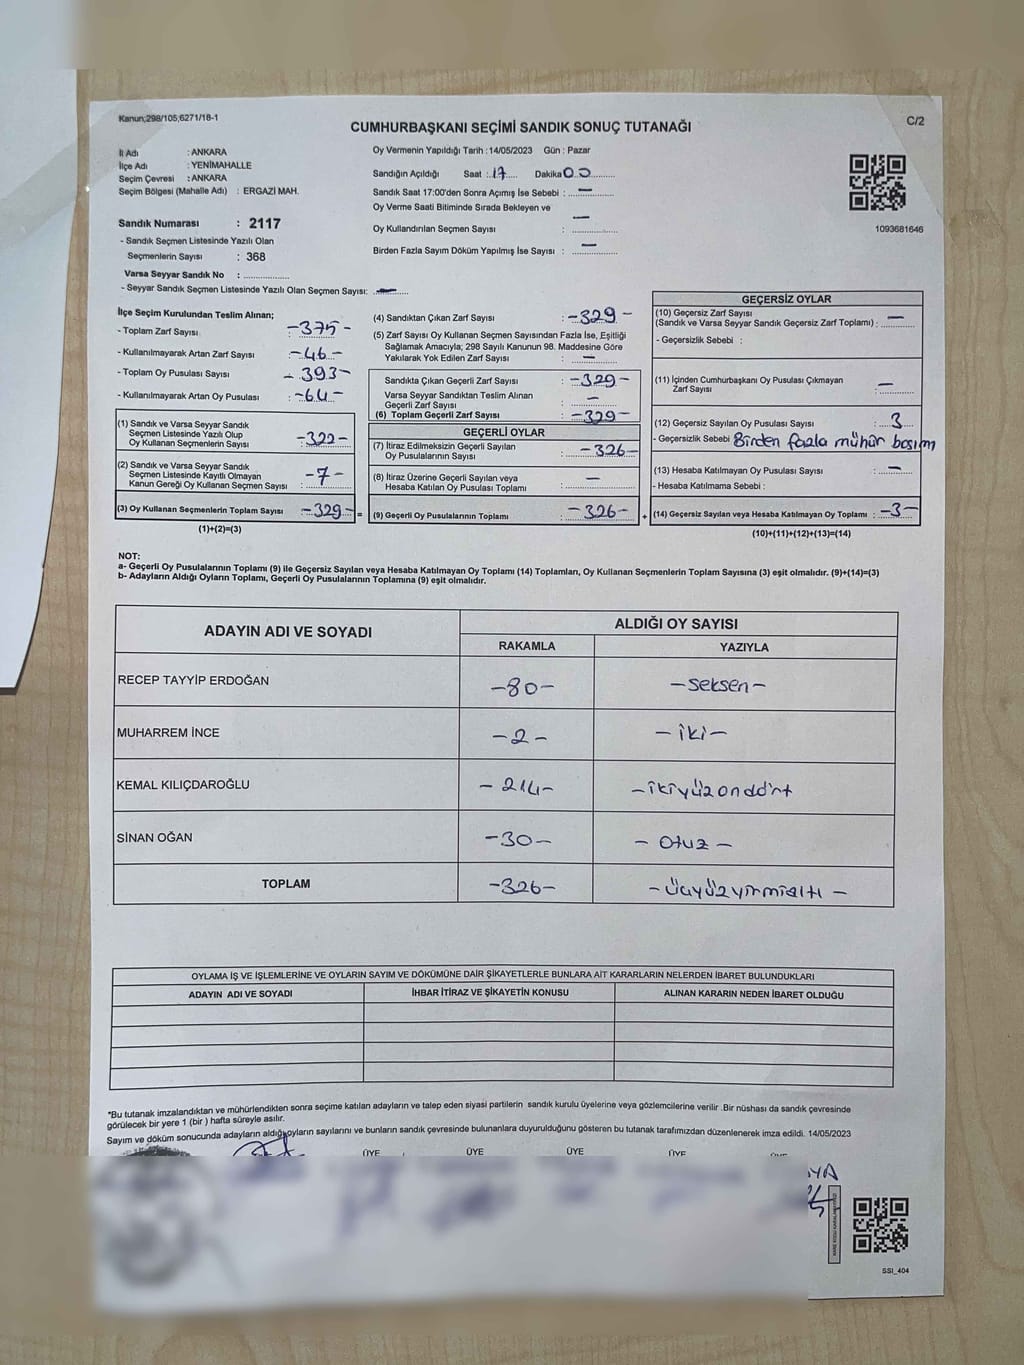 Kanun;298/105;6271/18-1
C/2
CUMHURBAŞKANI SEÇİMİ SANDIK SONUÇ TUTANAĞI
İl Adı : ANKARA
İlçe Adı : YENİMAHALLE
Seçim Çevresi : ANKARA
Seçim Bölgesi (Mahalle Adı) : ERGAZİ MAH.
Sandık Numarası : 2117
- Sandık Seçmen Listesinde Yazılı Olan
Seçmenlerin Sayısı : 368
Varsa Seyyar Sandık No : ..............
- Seyyar Sandık Seçmen Listesinde Yazılı Olan Seçmen Sayısı: —
Oy Vermenin Yapıldığı Tarih :14/05/2023 Gün : Pazar
Sandığın Açıldığı Saat :17 Dakika 00
Sandık Saat 17:00'den Sonra Açımış İse Sebebi : —
Oy Verme Saati Bitiminde Sırada Bekleyen ve
Oy Kullandırılan Seçmen Sayısı : —
Birden Fazla Sayım Döküm Yapılmış İse Sayısı : —
1093681646
İlçe Seçim Kurulundan Teslim Alınan;
- Toplam Zarf Sayısı : -375-
- Kullanılmayarak Artan Zarf Sayısı : -46-
- Toplam Oy Pusulası Sayısı : -393-
- Kullanılmayarak Artan Oy Pusulası : -64-
(1) Sandık ve Varsa Seyyar Sandık
Seçmen Listesinde Yazılı Olup
Oy Kullanan Seçmenlerin Sayısı : -322-
(2) Sandık ve Varsa Seyyar Sandık
Seçmen Listesinde Kayıtlı Olmayan
Kanun Gereği Oy Kullanan Seçmen Sayısı : -7-
(3) Oy Kullanan Seçmenlerin Toplam Sayısı : -329- =
(1)+(2)=(3)
(4) Sandıktan Çıkan Zarf Sayısı : -329-
(5) Zarf Sayısı Oy Kullanan Seçmen Sayısından Fazla İse, Eşitliği
Sağlamak Amacıyla; 298 Sayılı Kanunun 98. Maddesine Göre
Yakılarak Yok Edilen Zarf Sayısı : —
Sandıkta Çıkan Geçerli Zarf Sayısı : -329-
Varsa Seyyar Sandıktan Teslim Alınan
Geçerli Zarf Sayısı : —
(6) Toplam Geçerli Zarf Sayısı : -329-
GEÇERLİ OYLAR
(7) İtiraz Edilmeksizin Geçerli Sayılan
Oy Pusulalarının Sayısı : -326-
(8) İtiraz Üzerine Geçerli Sayılan veya
Hesaba Katılan Oy Pusulası Toplamı : —
(9) Geçerli Oy Pusulalarının Toplamı : -326- +
GEÇERSİZ OYLAR
(10) Geçersiz Zarf Sayısı
(Sandık ve Varsa Seyyar Sandık Geçersiz Zarf Toplamı) : —
- Geçersizlik Sebebi :
(11) İçinden Cumhurbaşkanı Oy Pusulası Çıkmayan
Zarf Sayısı : —
(12) Geçersiz Sayılan Oy Pusulası Sayısı : 3
- Geçersizlik Sebebi Birden fazla mühür basımı
(13) Hesaba Katılmayan Oy Pusulası Sayısı : —
- Hesaba Katılmama Sebebi :
(14) Geçersiz Sayılan veya Hesaba Katılmayan Oy Toplamı : -3-
(10)+(11)+(12)+(13)=(14)
NOT:
a- Geçerli Oy Pusulalarının Toplamı (9) ile Geçersiz Sayılan veya Hesaba Katılmayan Oy Toplamı (14) Toplamları, Oy Kullanan Seçmenlerin Toplam Sayısına (3) eşit olmalıdır. (9)+(14)=(3)
b- Adayların Aldığı Oyların Toplamı, Geçerli Oy Pusulalarının Toplamına (9) eşit olmalıdır.
ADAYIN ADI VE SOYADI ALDIĞI OY SAYISI
RAKAMLA YAZIYLA
RECEP TAYYİP ERDOĞAN -80- -seksen-
MUHARREM İNCE -2- -iki-
KEMAL KILIÇDAROĞLU -214- -ikiyüzondört
SİNAN OĞAN -30- -Otuz-
TOPLAM -326- -üçyüzyirmialtı-
OYLAMA İŞ VE İŞLEMLERİNE VE OYLARIN SAYIM VE DÖKÜMÜNE DAİR ŞİKAYETLERLE BUNLARA AİT KARARLARIN NELERDEN İBARET BULUNDUKLARI
ADAYIN ADI VE SOYADI İHBAR İTİRAZ VE ŞİKAYETİN KONUSU ALINAN KARARIN NEDEN İBARET OLDUĞU
*Bu tutanak imzalandıktan ve mühürlendikten sonra seçime katılan adayların ve talep eden siyasi partilerin sandık kurulu üyelerine veya gözlemcilerine verilir .Bir nüshası da sandık çevresinde
görülecek bir yere 1 (bir ) hafta süreyle asılır.
Sayım ve döküm sonucunda adayların aldığı oyların sayılarını ve bunların sandık çevresinde bulunanlara duyurulduğunu gösteren bu tutanak tarafımızdan düzenlenerek imza edildi. 14/05/2023
ÜYE ÜYE ÜYE ÜYE
SSI_404